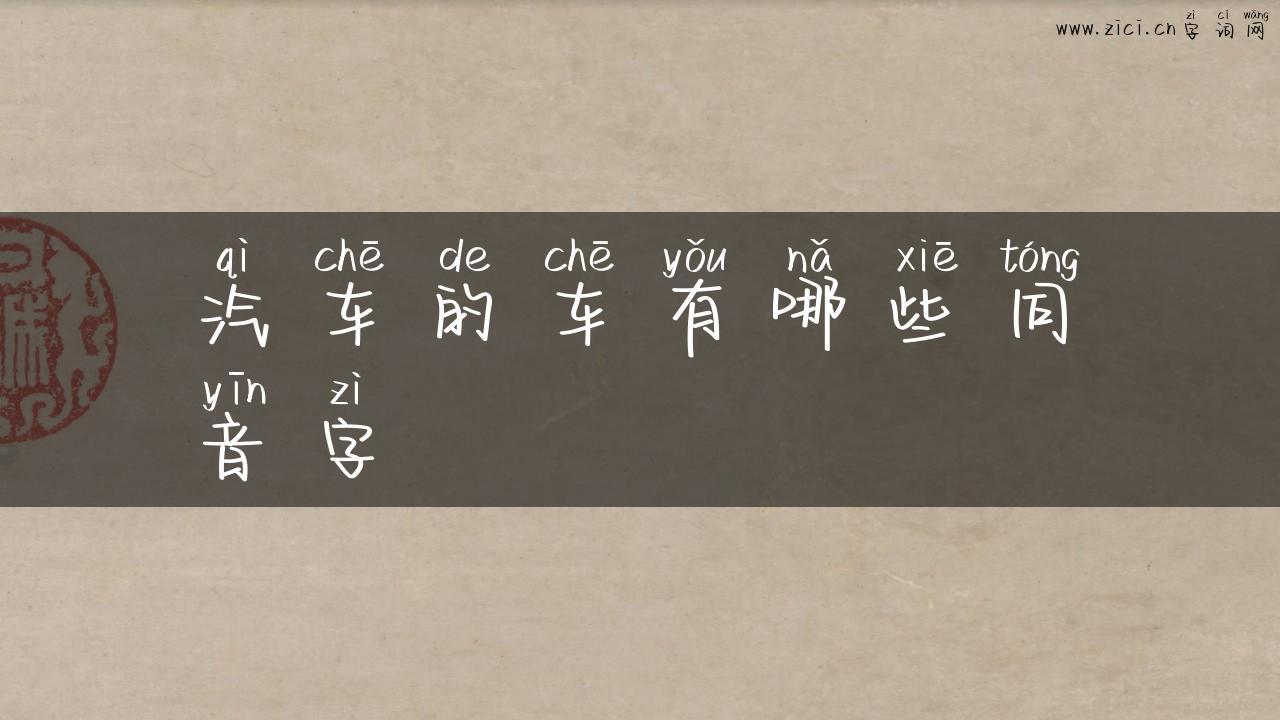 zì cí wǎng
www.zici.cn字词网
qì chē de chē yǒu nǎ xiē tóng
汽车的车有哪些同
yīn zì
音字